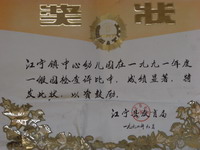 奖状
江宁镇中心幼儿园在一九九一年度
一级园检查评比中,成绩显著,特
发此状,以资鼓励。
江宁县教育局
一九九二年